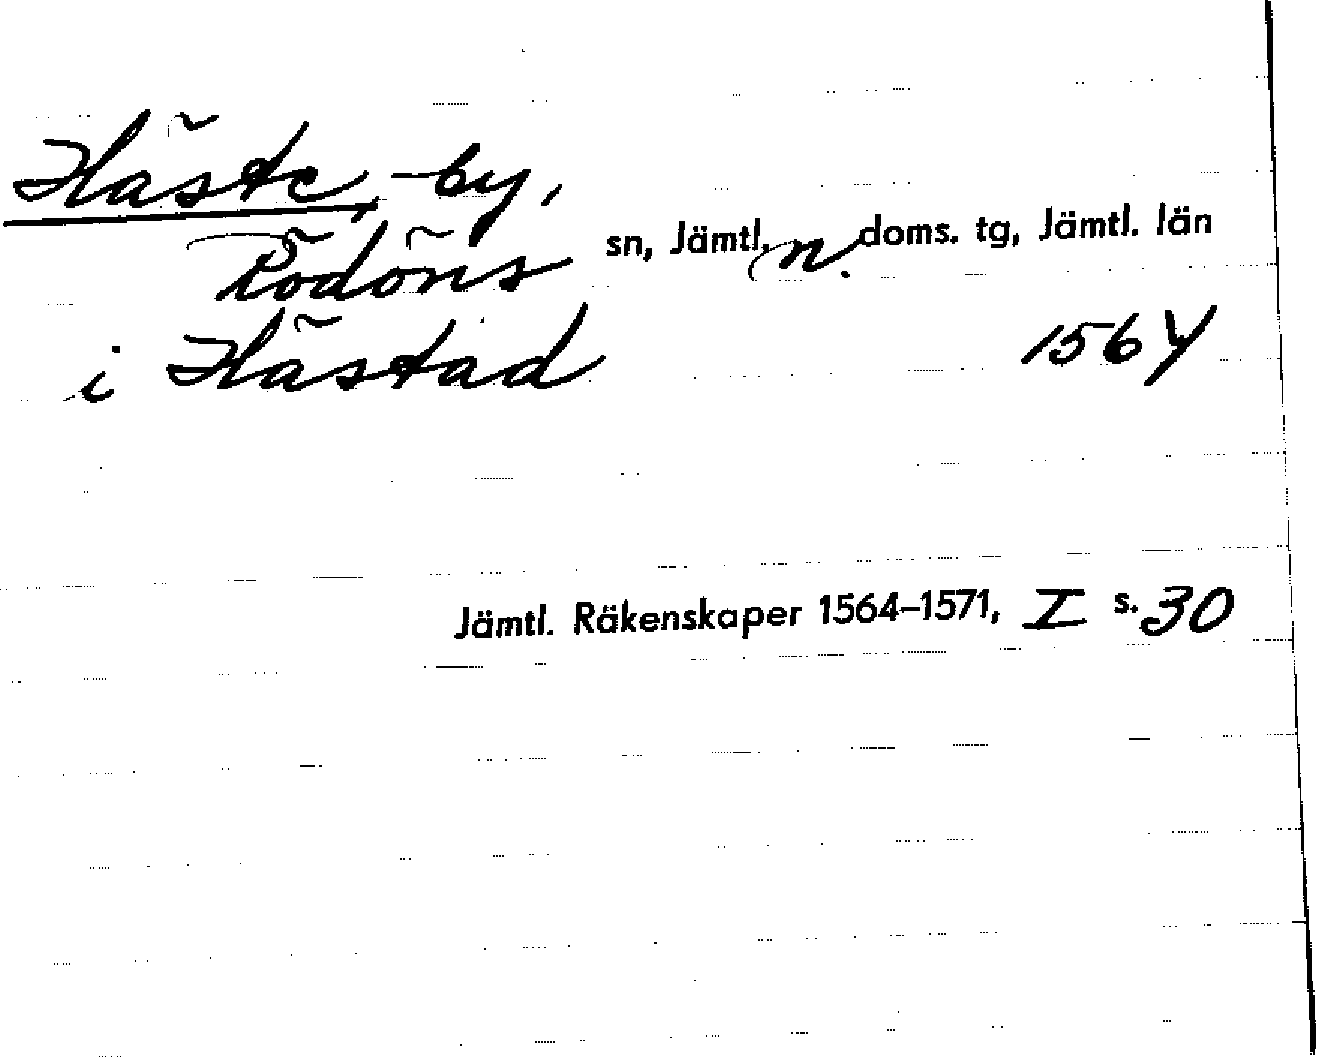 Häste, by,
Rödöns sn, Jämtl. n. doms. tg, Jämtl. län
i Hästad 1564
Jämtl. Räkenskaper 1564–1571, I s. 30